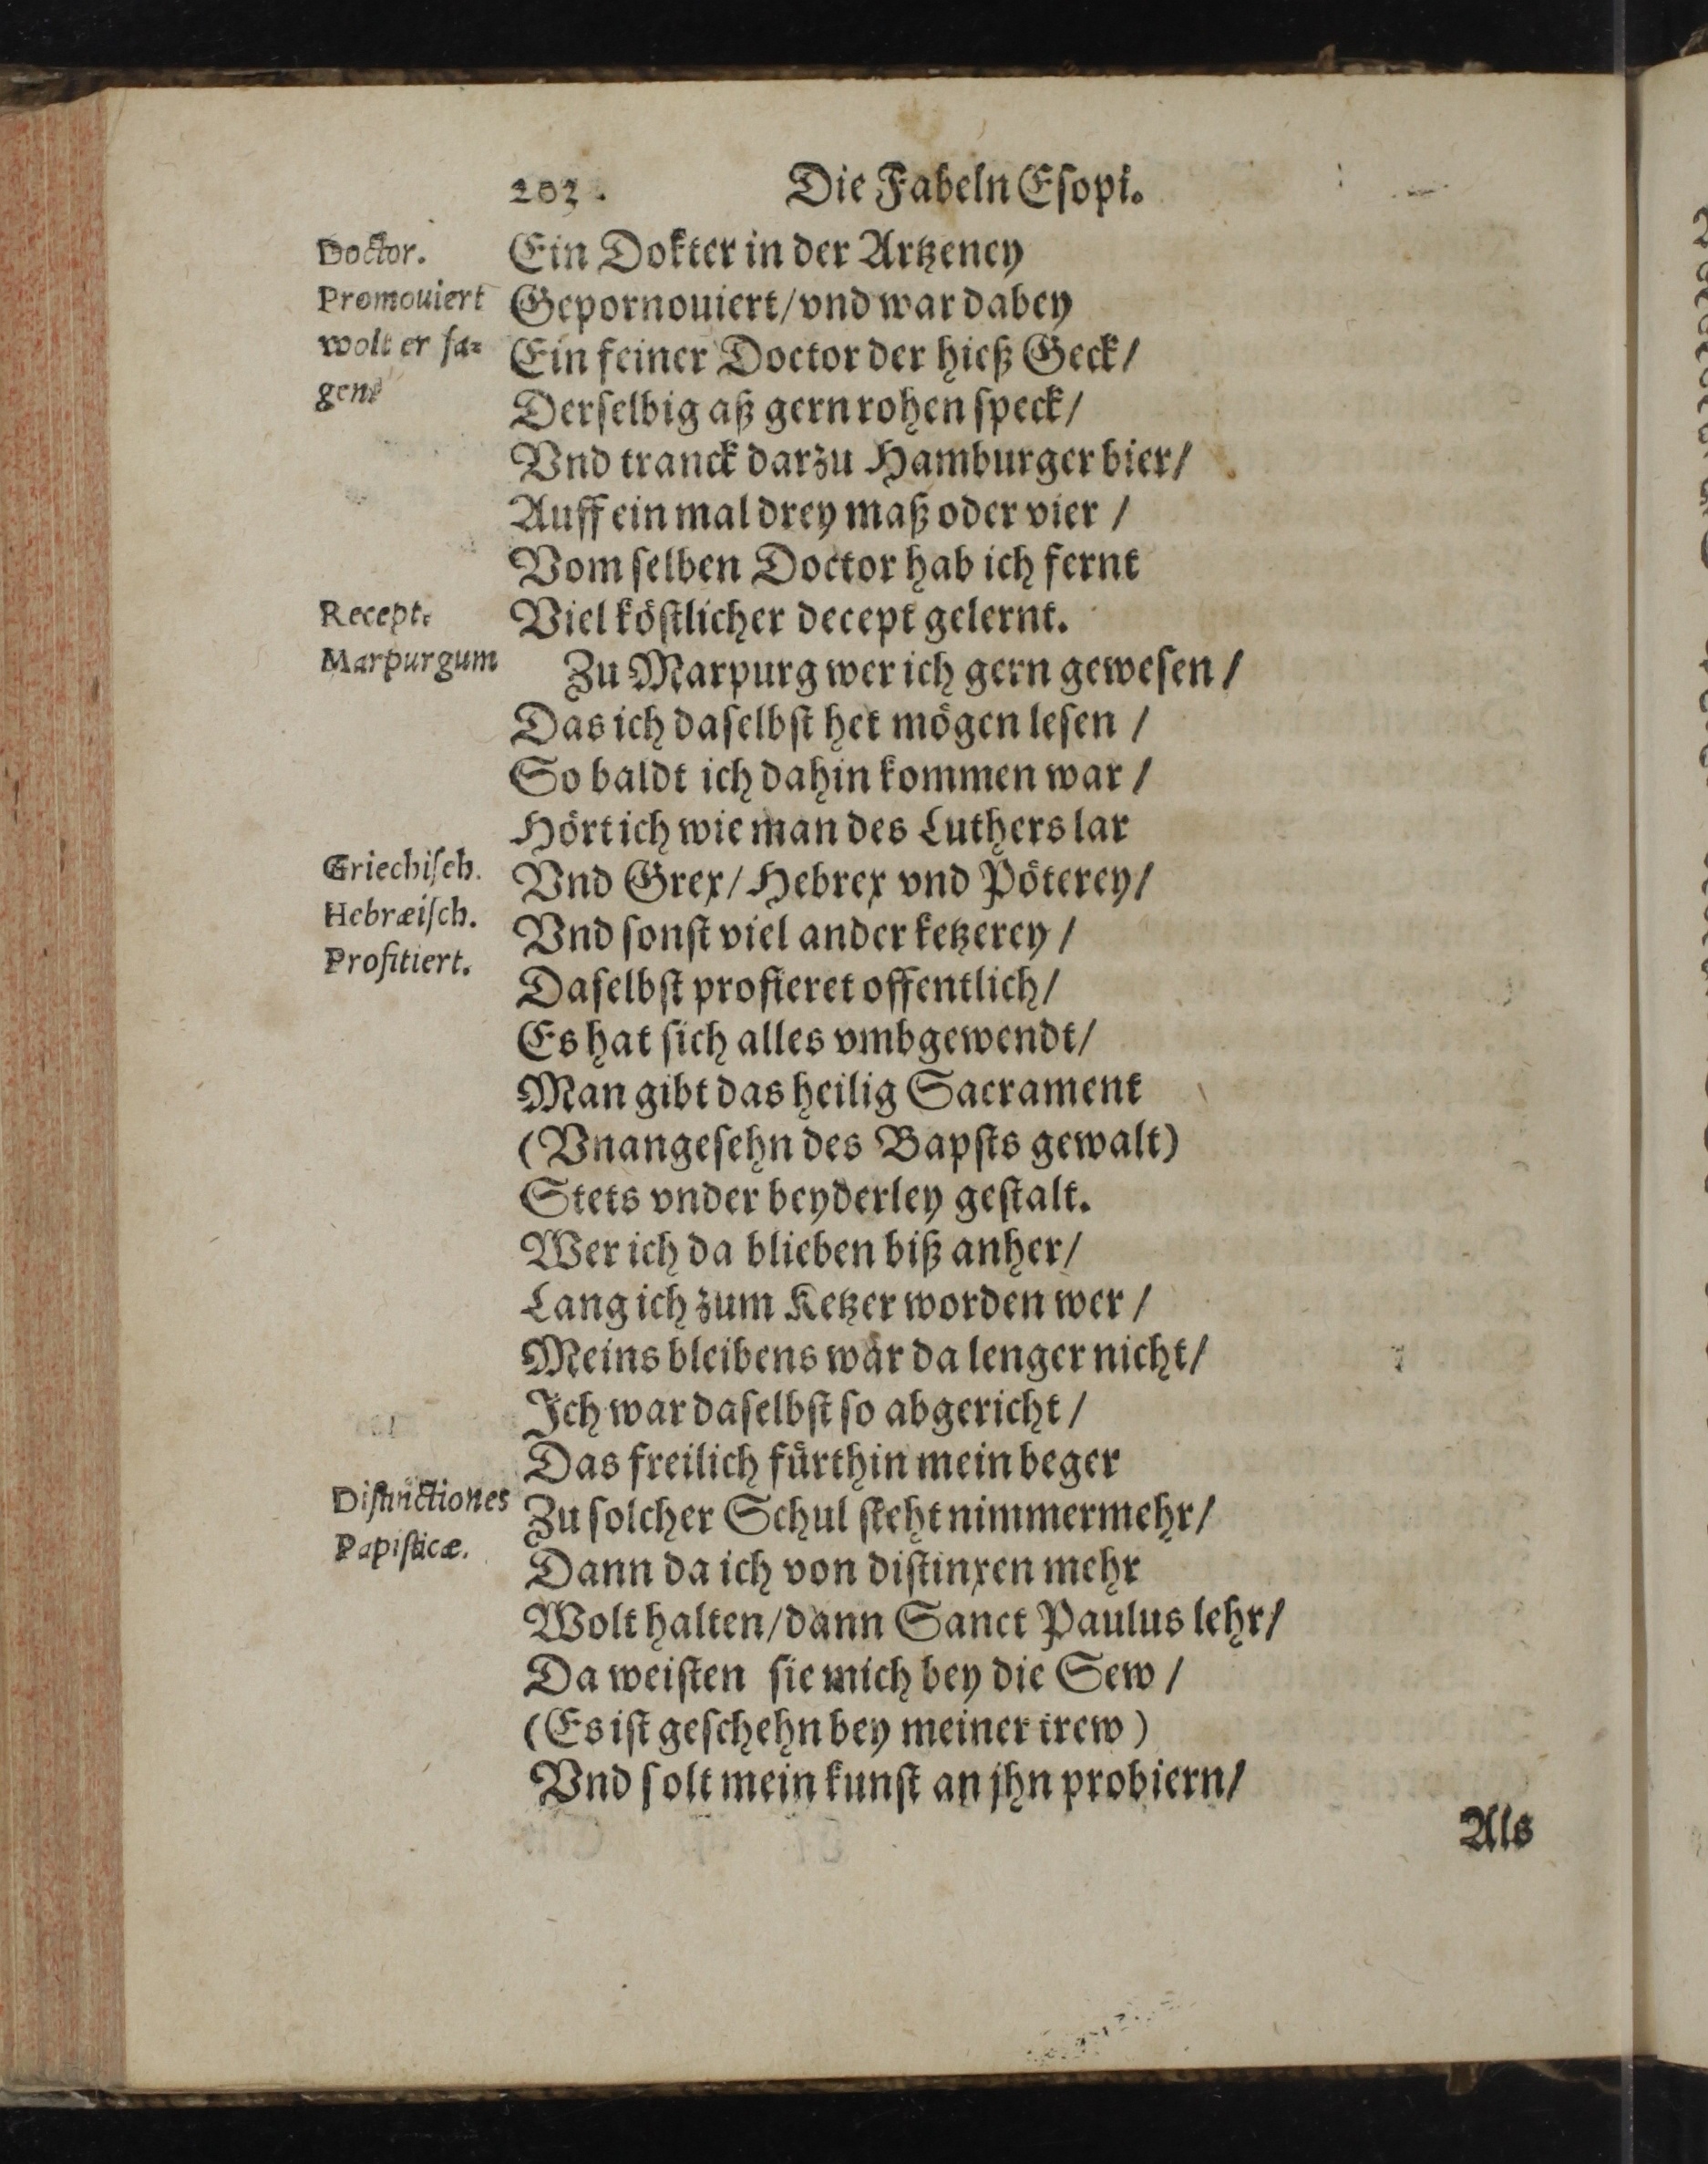 202. Die Fabeln Eſopi.
Doctor.
Promouiert
wolt er ſa⸗
gen
Recept.
Marpurgum
Griechiſch.
Hebræiſch.
Profitiert.
Diſtinctiones
Papiſticæ.
Ein Dokter in der Artzeney
Gepornouiert/vnd war dabey
Ein feiner Doctor der hieß Geck/
Derſelbig aß gern rohen ſpeck/
Vnd tranck darzu Hamburger bier/
Auff ein mal drey maß oder vier /
Vom ſelben Doctor hab ich fernt
Viel köſtlicher decept gelernt.
Zu Marpurg wer ich gern geweſen /
Das ich daſelbſt het mögen leſen /
So baldt ich dahin kommen war /
Hört ich wie man des Luthers lar
Vnd Grex/Hebrex vnd Pöterey/
Vnd ſonſt viel ander ketzerey /
Daſelbſt profieret offentlich/
Es hat ſich alles vmbgewendt/
Man gibt das heilig Sacrament
(Vnangeſehn des Bapſts gewalt)
Stets vnder beyderley geſtalt.
Wer ich da blieben biß anher/
Lang ich zum Ketzer worden wer /
Meins bleibens war da lenger nicht/
Ich war daſelbſt ſo abgericht /
Das freilich fürthin mein beger
Zu ſolcher Schul ſteht nimmermehr/
Dann da ich von diſtinxen mehr
Wolt halten/dann Sanct Paulus lehr/
Da weiſten ſie mich bey die Sew /
(Es iſt geſchehn bey meiner trew )
Vnd ſolt mein kunſt an jhn probiern/
Als